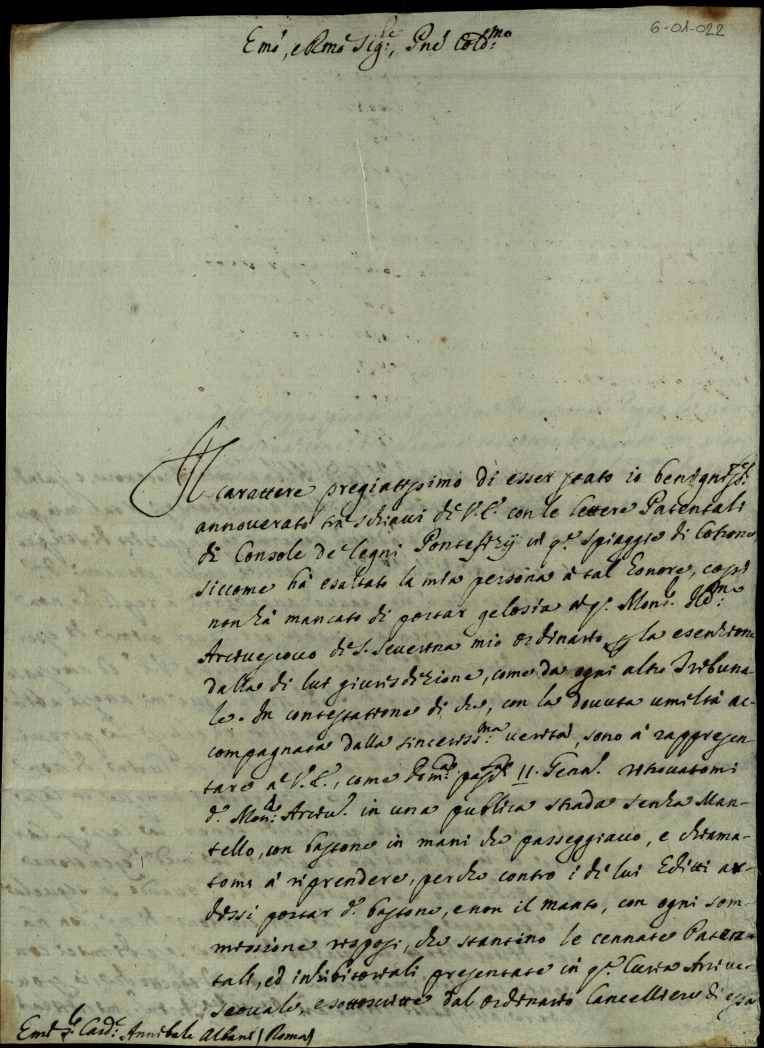 6-01-022
Emo, e Rmo Sigre, Pne Coldmo
Il carattere pregiatissimo di esser stato io benigniste
annoverato tra schiavi di V. E. con le lettere Patentali
di Console de legni Pontefizij in qe Spiaggie di Cotrone,
siccome hà esaltato la mia persona à tal honore, così
non hà mancato di portar gelosia à qo Monsr Illmo
Arcivescovo di S. Severina mio ordinario la esenzione
dalla di lui giurisdizione, come da ogni altro Tribuna-
le. In contestatione di che, con la dovuta umiltà ac-
compagnata dalla sincerissma verità, sono à rappresen-
tare a V. E., come Domca passta 11. Gennro ritrovatomi
do Monsr Arcivo in una publica strada senza Man-
tello, con bastone in mani che passeggiavo, e chiama-
tomi à riprendere, perche contro i di lui Editti ar-
dessi portar do bastone, e non il manto, con ogni som-
missione risposi, che stantino le cennate Paten-
tali, ed inhibitoriali presentate in qa Curia Arcive-
scovale, e sottoscritte dal ordinario Cancelliero di essa
Emo Sr Cardle Annibale Albani (Roma)